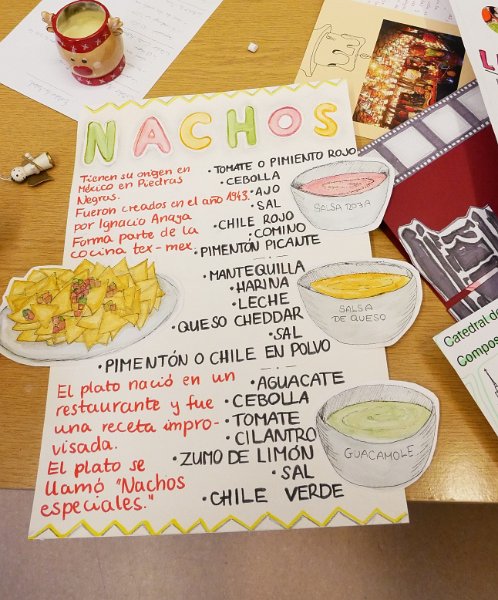 NACHOS
Tienen su origen en
México en Piedras
Negras.
Fueron creados en el año 1943.
por Ignacio Anaya
Forma parte de la
cocina tex-mex.
• TOMATE O PIMIENTO ROJO
• CEBOLLA
• AJO
• SAL
• CHILE ROJO
• COMINO
• PIMENTÓN PICANTE
SALSA ROJA
• MANTEQUILLA
• HARINA
• LECHE
• QUESO CHEDDAR
• SAL
• PIMENTÓN O CHILE EN POLVO
SALSA
DE QUESO
El plato nació en un
restaurante y fue
una receta impro-
visada.
El plato se
llamó "Nachos
especiales."
• AGUACATE
• CEBOLLA
• TOMATE
• CILANTRO
• ZUMO DE LIMÓN
• SAL
• CHILE VERDE
GUACAMOLE
Catedral de
Compos